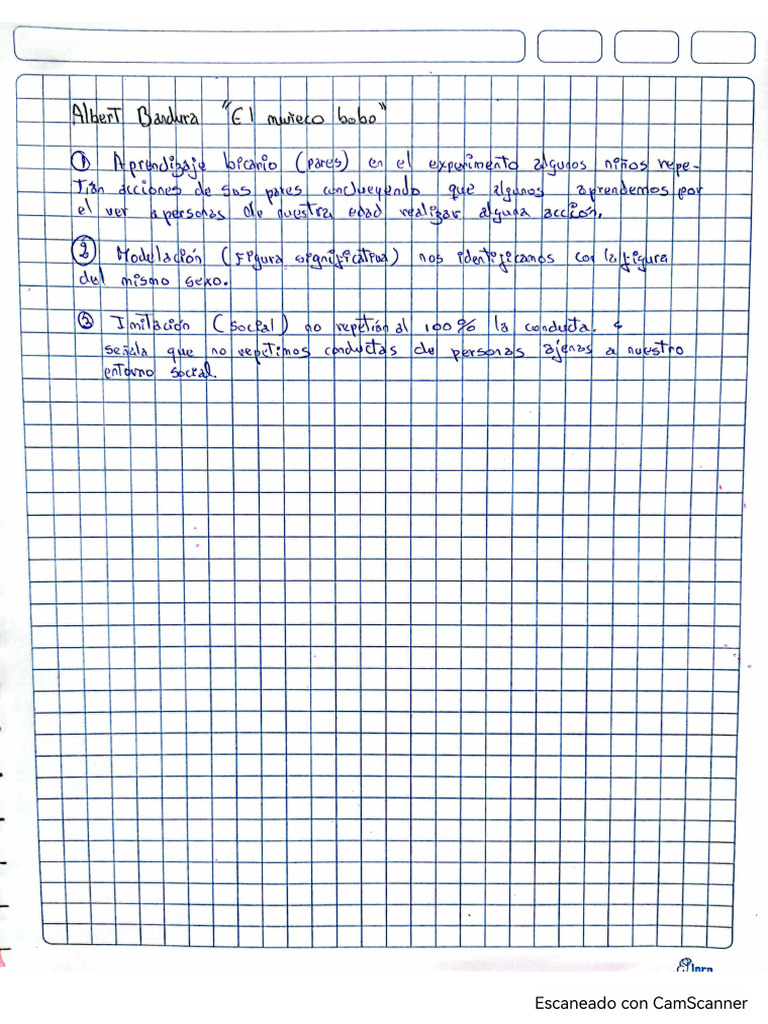 Albert Bandura "El muñeco bobo"
① Aprendizaje bicario (pares) en el experimento algunos niños repe-
tían acciones de sus pares conclueyendo que algunos aprendemos por
el ver a personas de nuestra edad realizar alguna acción.
② Modelación (Figura significativa) nos identificamos con la figura
del mismo sexo.
③ Imitación (social) no repetían al 100% la conducta.
señala que no repetimos conductas de personas ajenas a nuestro
entorno social.
Escaneado con CamScanner